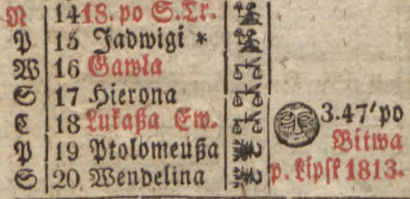 N 14 18. po S. Tr.
P 15 Jadwigi *
W 16 Gawła
S 17 Hierona
C 18 Lukaßa Ew. 3.47'po
P 19 Ptolomeußa Bitwa
S 20 Wendelina p. Lipſk 1813.